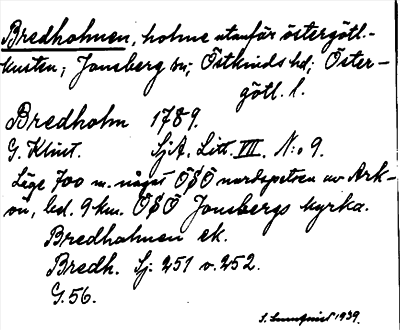 Bredholmen, holme utanför östergötl.-
kusten; Jonsberg sn; Östkinds hd; Öster-
götl. l.
Bredholm 1789.
G. Klint. SjA, Litt. VII. N:o 9.
Läge 700 m. något ÖSÖ nordspetsen av Ark-
ön, bel. 9 km. ÖSÖ Jonsbergs kyrka.
Bredholmen ek.
Bredh. Sj: 251 o. 252.
G. 56.
1939.